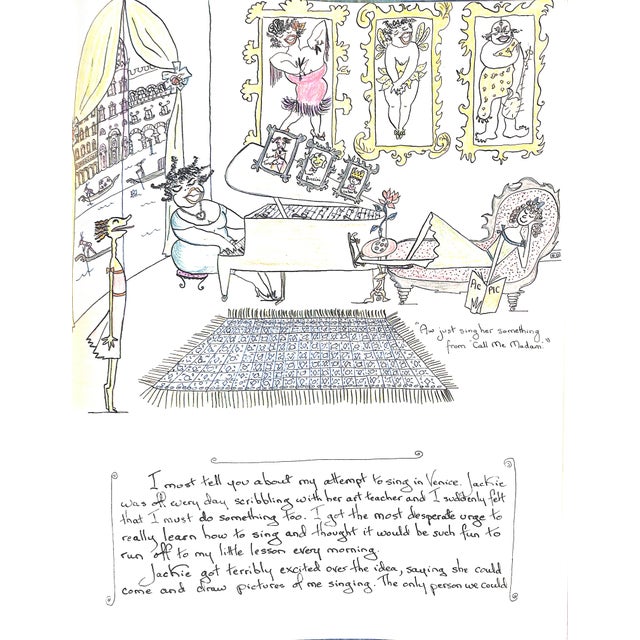 Puccini
Pic
PIC
"Aw just sing her something
from Call Me Madam."
I must tell you about my attempt to sing in Venice. Jackie
was off every day scribbling with her art teacher and I suddenly felt
that I must do something too. I got the most desperate urge to
really learn how to sing and thought it would be such fun to
run off to my little lesson every morning.
Jackie got terribly excited over the idea, saying she could
come and draw pictures of me singing. The only person we could